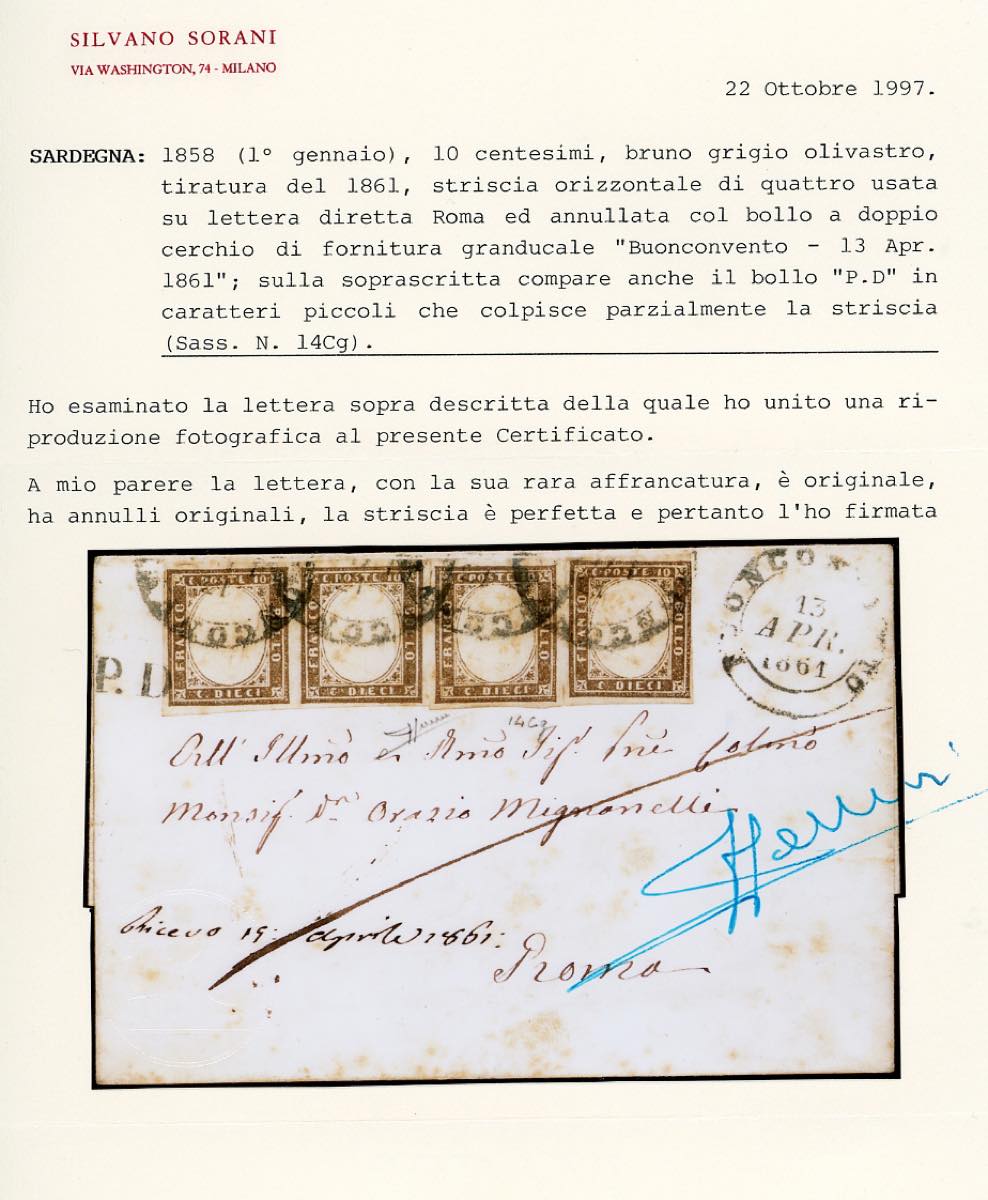 SILVANO SORANI
VIA WASHINGTON, 74 - MILANO
22 Ottobre 1997.
SARDEGNA: 1858 (1° gennaio), 10 centesimi, bruno grigio olivastro,
tiratura del 1861, striscia orizzontale di quattro usata
su lettera diretta Roma ed annullata col bollo a doppio
cerchio di fornitura granducale "Buonconvento - 13 Apr.
1861"; sulla soprascritta compare anche il bollo "P.D" in
caratteri piccoli che colpisce parzialmente la striscia
(Sass. N. 14Cg).
Ho esaminato la lettera sopra descritta della quale ho unito una ri-
produzione fotografica al presente Certificato.
A mio parere la lettera, con la sua rara affrancatura, è originale,
ha annulli originali, la striscia è perfetta e pertanto l'ho firmata
C. POSTE 10 C. POSTE 10 C. POSTE 10 C. POSTE 10
FRANCO FRANCO FRANCO FRANCO BOLLO
C. DIECI C. DIECI C. DIECI C. DIECI
13
APR.
1861
P.D
14Cg
All' Illmo e
Monsig. Orazio Mignanelli
19 Aprile 1861.
Roma